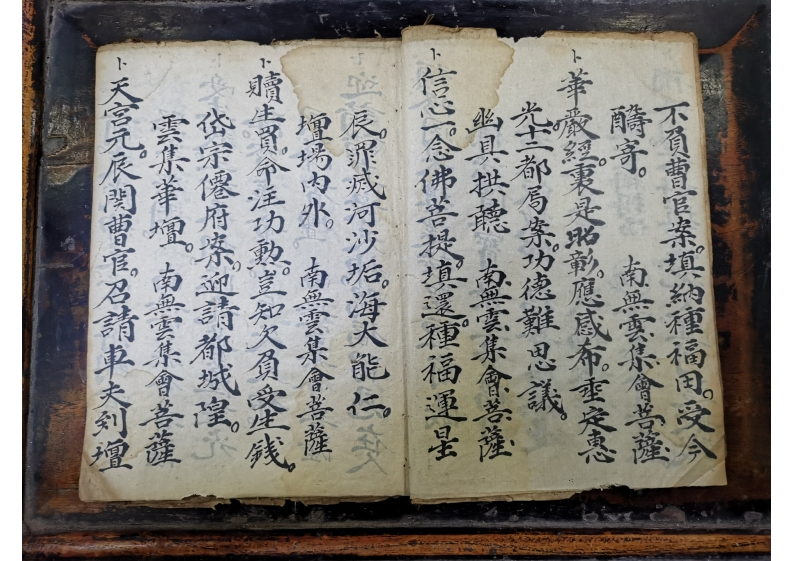 不負曹官案。填納種福田。受今
酬寄。 南無雲集會菩薩
卜華嚴經裏是昭彰。應感布。垂定惠
光十二都局案。功德難思議。
幽具拱聽 南無雲集會菩薩
卜信心一念佛菩提。填還種福運星
辰。罪滅河沙垢。海大能仁。
壇場內外。 南無雲集會菩薩
卜贖生買命注功勲。豈知欠負受生銭。
岱宗僊府案。迎請都城隍。
雲集華壇。 南無雲集會菩薩
卜天宮元辰関曹官。召請車夫到壇